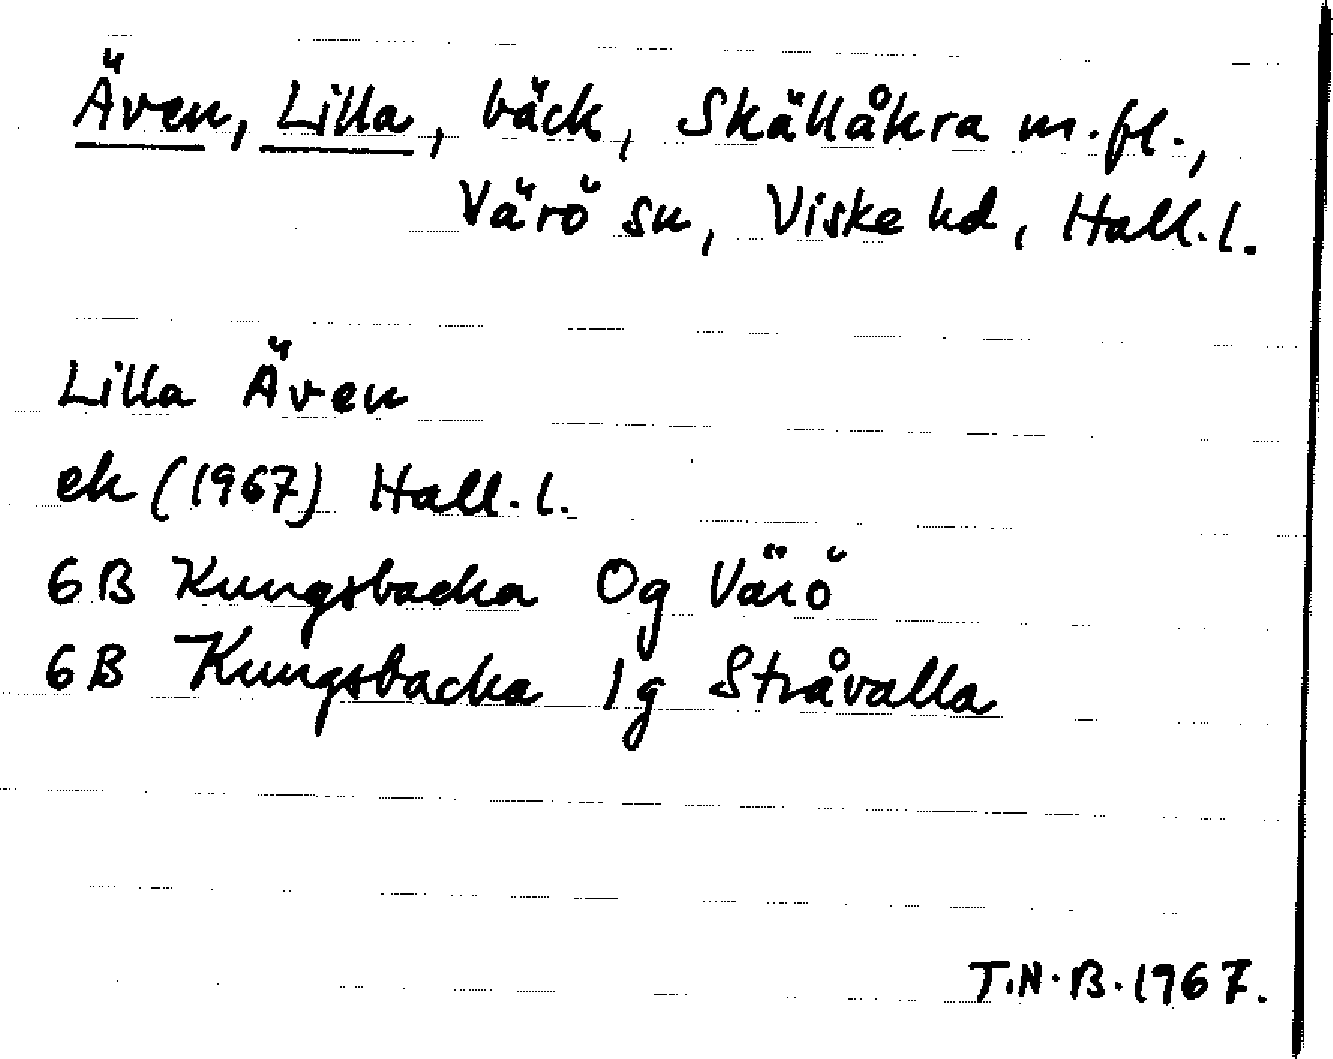 Även, Lilla, bäck, Skällåkra m.fl.,
Värö sn, Viske hd, Hall.l.
Lilla Även
ek (1967) Hall.l.
6B Kungsbacka 0g Värö
6B Kungsbacka 1g Stråvalla
T.N.B. 1967.